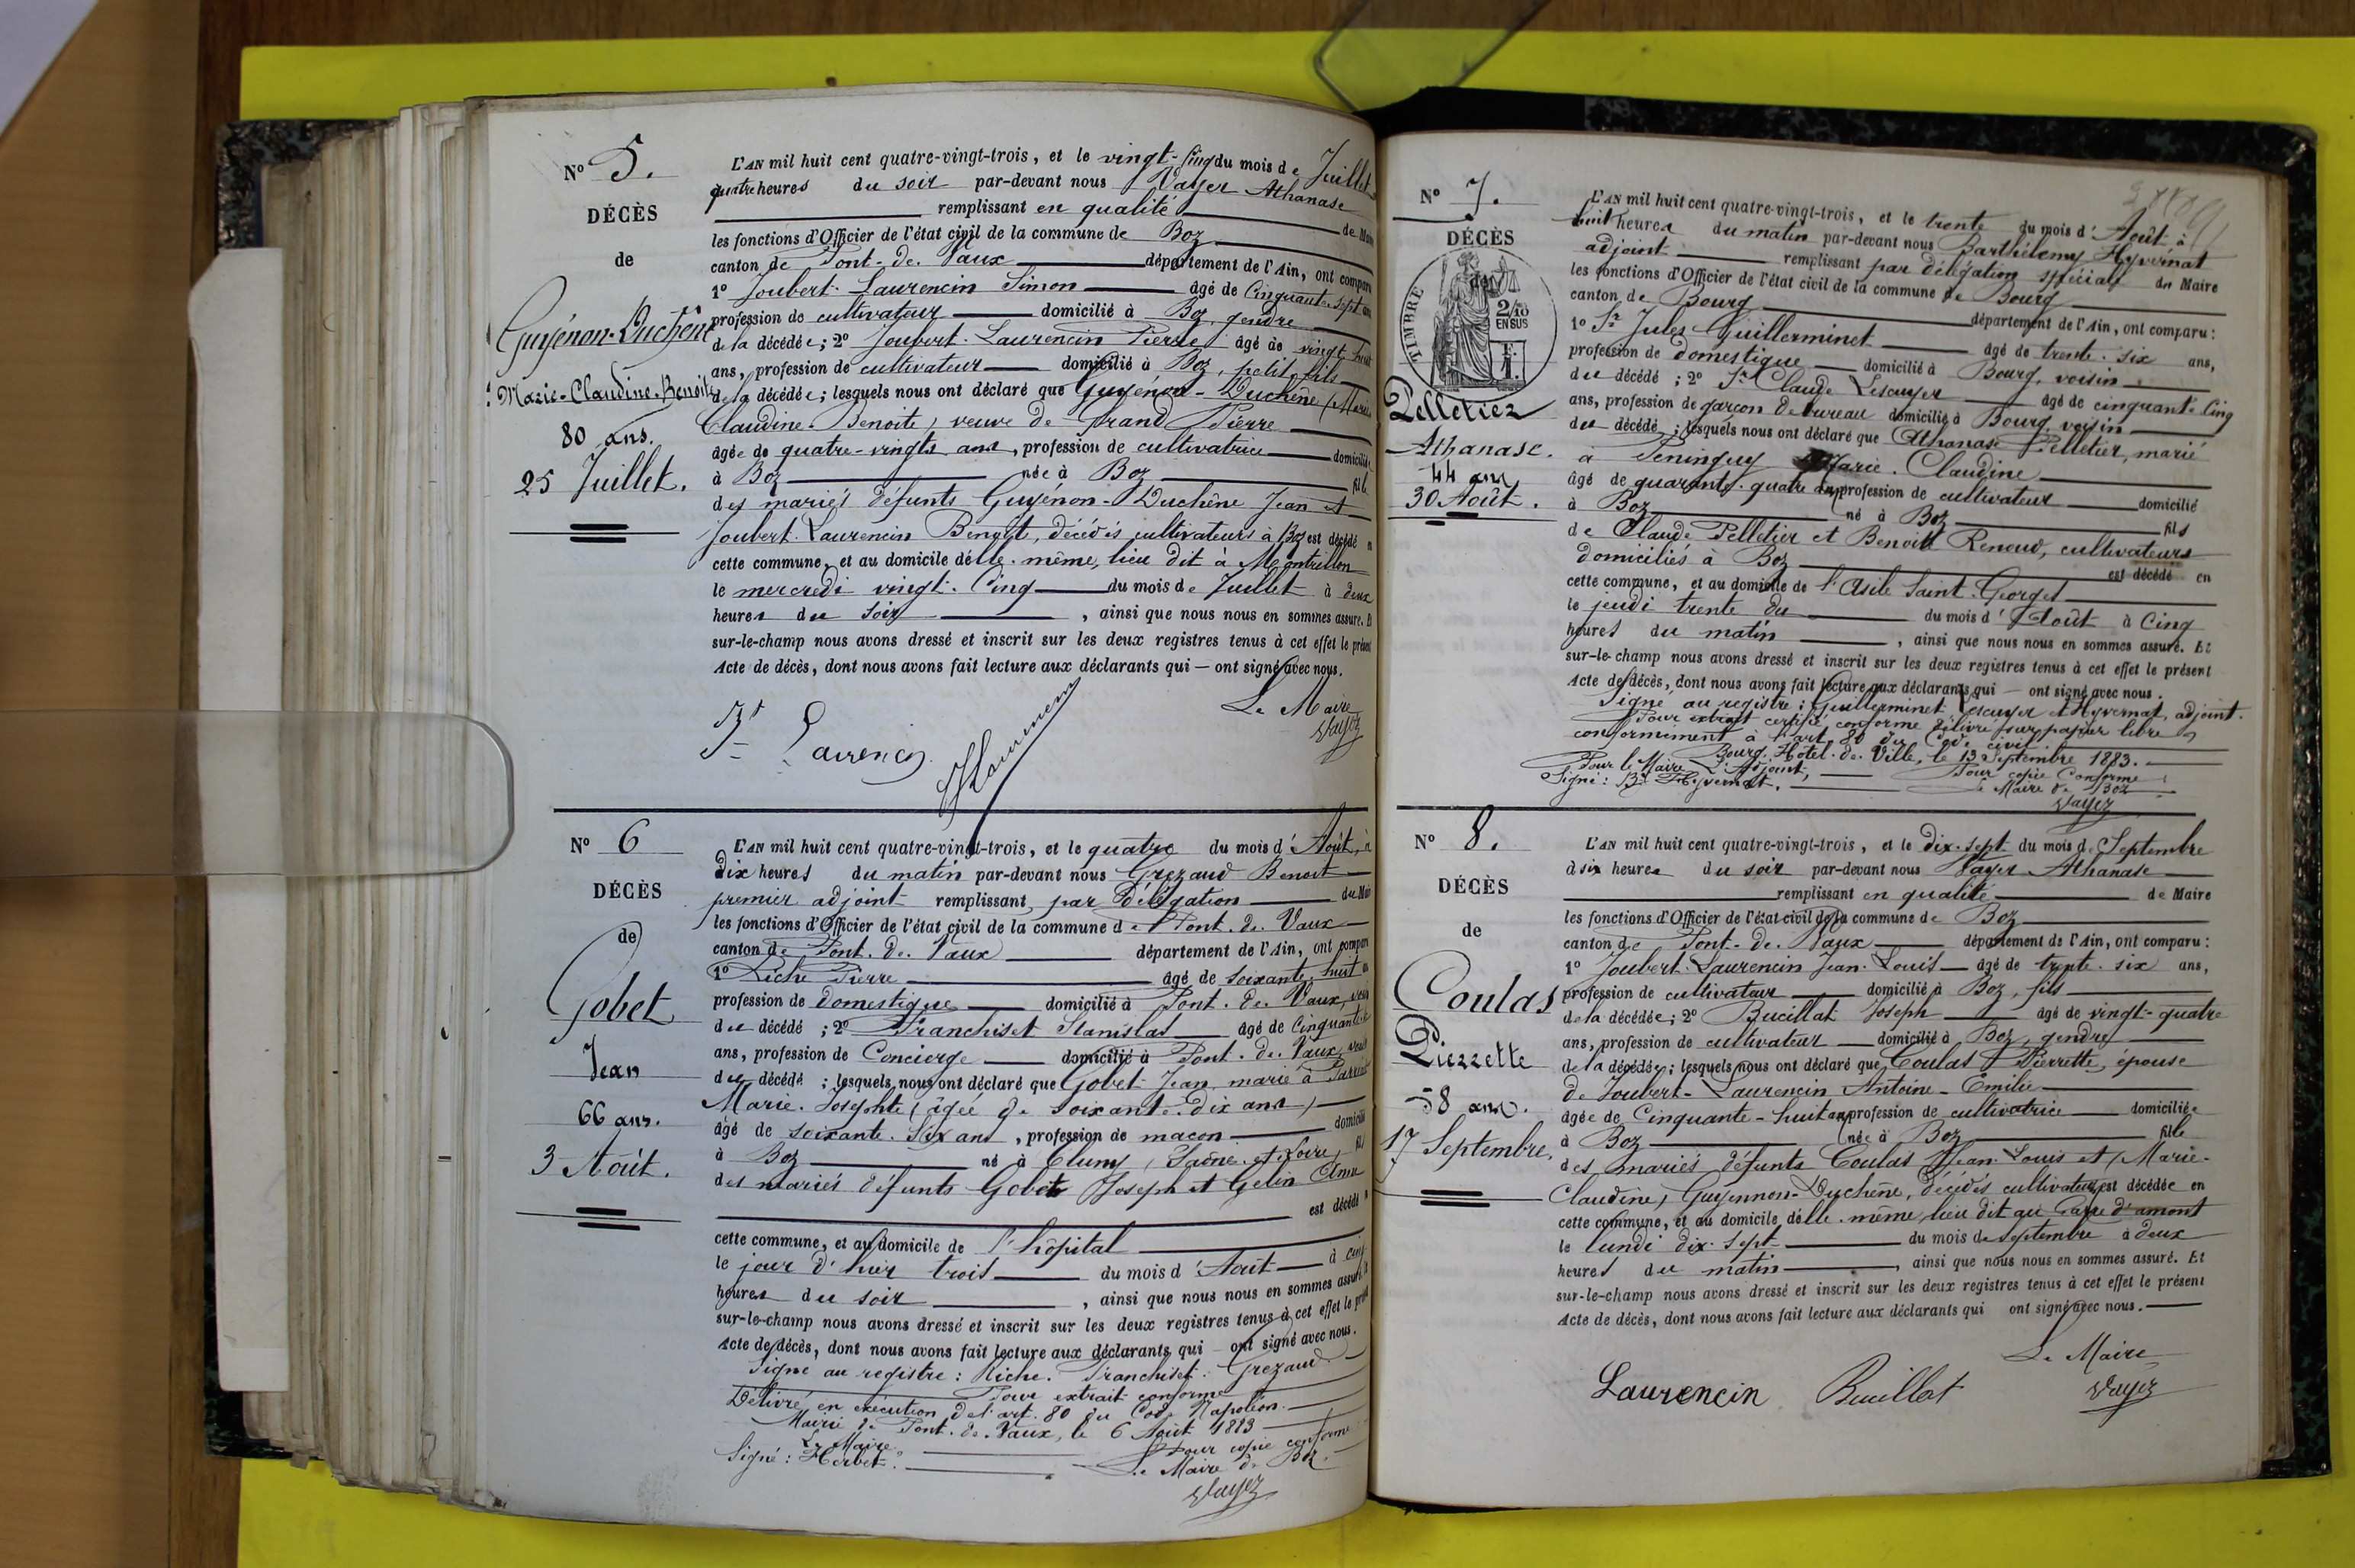 N° 5.
DÉCÈS
de
Guyénon-Duchêne
Marie-Claudine-Benoite
80 ans.
25 Juillet.
L'AN mil huit cent quatre-vingt-trois, et le vingt-cinq du mois de Juillet
quatre heures du soir par-devant nous Vayer Athanase
remplissant en qualité de Maire
les fonctions d'Officier de l'état civil de la commune de Boz
canton de Pont-de-Vaux département de l'Ain, ont comparu
1° Joubert-Laurencin Simon âgé de Cinquante-sept ans
profession de cultivateur domicilié à Boz, gendre
de la décédée; 2° Joubert-Laurencin Pierre âgé de vingt-huit
ans, profession de cultivateur domicilié à Boz, petit-fils
de la décédée; lesquels nous ont déclaré que Guyénon-Duchêne (Marie
Claudine-Benoite) veuve de Grand Pierre
âgée de quatre-vingts ans, profession de cultivatrice domiciliée
à Boz née à Boz fille
des mariés défunts Guyénon-Duchêne Jean et
Joubert-Laurencin Benoite, décédés cultivateurs à Boz est décédé en
cette commune, et au domicile d'elle-même, lieu dit à Montrillon
le mercredi vingt-cinq du mois de Juillet à deux
heures du soir, ainsi que nous nous en sommes assuré. Et
sur-le-champ nous avons dressé et inscrit sur les deux registres tenus à cet effet le présent
Acte de décès, dont nous avons fait lecture aux déclarants qui — ont signé avec nous.
Le Maire
Vayer
Laurencin
N° 6
DÉCÈS
de
Gobet
Jean
66 ans.
3 Août.
L'AN mil huit cent quatre-vingt-trois, et le quatre du mois d'Août, à
dix heures du matin par-devant nous Grezaud Benoit
premier adjoint remplissant par délégation du Maire
les fonctions d'Officier de l'état civil de la commune de Pont-de-Vaux
canton de Pont-de-Vaux département de l'Ain, ont comparu
1° Riche Pierre âgé de soixante-huit
profession de domestique domicilié à Pont-de-Vaux,
du décédé; 2° Franchiset Stanislas âgé de Cinquante
ans, profession de Concierge domicilié à Pont-de-Vaux,
du décédé; lesquels nous ont déclaré que Gobet Jean, marié à
Marie-Josephte (âgée de soixante-dix ans)
âgé de soixante-six ans, profession de maçon domicilié
à Boz né à Cluny (Saône-et-Loire) fils
des mariés défunts Gobet Joseph et Gelin
est décédé
cette commune, et au domicile de l'hôpital
le jour d'hier trois du mois d'Août à cinq
heures du soir, ainsi que nous nous en sommes assuré. Et
sur-le-champ nous avons dressé et inscrit sur les deux registres tenus à cet effet le présent
Acte de décès, dont nous avons fait lecture aux déclarants qui — ont signé avec nous.
Signé au registre: Riche. Franchiset. Grezaud.
Pour extrait conforme
Délivré en exécution de l'art. 80 du Code Napoléon.
Mairie de Pont-de-Vaux, le 6 Août 1883
Le Maire,
Signé: Herbet.
Pour copie conforme
Le Maire de Boz.
Vayer
N° 7.
DÉCÈS
de
TIMBRE
2/10
EN SUS
Pelletier
Athanase.
44 ans
30 Août.
L'AN mil huit cent quatre-vingt-trois, et le trente du mois d'Août à
huit heures du matin par-devant nous Barthélemy Hyvernat
adjoint remplissant par délégation spéciale du Maire
les fonctions d'Officier de l'état civil de la commune de Bourg
canton de Bourg département de l'Ain, ont comparu:
1° Sr Jules Guillerminet âgé de trente-six ans,
profession de domestique domicilié à Bourg, voisin
du décédé; 2° Sr Claude Lescuyer âgé de cinquante-cinq
ans, profession de garçon de bureau domicilié à Bourg, voisin
du décédé; lesquels nous ont déclaré que Athanase Pelletier, marié
à Peninguy Marie-Claudine
âgé de quarante-quatre ans profession de cultivateur domicilié
à Boz né à Boz fils
de Claude Pelletier et Benoite Renoud, cultivateurs
domiciliés à Boz est décédé en
cette commune, et au domicile de l'Asile Saint-Georges
le jeudi trente du du mois d'Août à Cinq
heures du matin, ainsi que nous nous en sommes assuré. Et
sur-le-champ nous avons dressé et inscrit sur les deux registres tenus à cet effet le présent
Acte de décès, dont nous avons fait lecture aux déclarants qui — ont signé avec nous.
Signé au registre: Guillerminet Lescuyer et Hyvernat, adjoint.
Pour extrait certifié conforme délivré sur papier libre
conformément à l'art. 80 du Code civil.
Bourg, Hôtel-de-Ville, le 13 Septembre 1883.
Pour le Maire, L'Adjoint,
Signé: By Hyvernat.
Pour copie Conforme
Le Maire de Boz
Vayer
N° 8.
DÉCÈS
de
Coulas
Pierrette
58 ans.
17 Septembre.
L'AN mil huit cent quatre-vingt-trois, et le dix-sept du mois de Septembre
à six heures du soir par-devant nous Vayer Athanase
remplissant en qualité de Maire
les fonctions d'Officier de l'état civil de la commune de Boz
canton de Pont-de-Vaux département de l'Ain, ont comparu:
1° Joubert-Laurencin Jean-Louis âgé de trente-six ans,
profession de cultivateur domicilié à Boz, fils
de la décédée; 2° Bucillat Joseph âgé de vingt-quatre
ans, profession de cultivateur domicilié à Boz, gendre
de la décédée; lesquels nous ont déclaré que Coulas Pierrette, épouse
de Joubert-Laurencin Antoine-Emilie
âgée de Cinquante-huit ans profession de cultivatrice domiciliée
à Boz née à Boz fille
des mariés défunts Coulas Jean-Louis et (Marie-
Claudine) Guyennon-Duchêne, décédés cultivateurs est décédée en
cette commune, et au domicile d'elle-même, lieu dit au Carre d'amont
le lundi dix-sept du mois de Septembre à deux
heures du matin, ainsi que nous nous en sommes assuré. Et
sur-le-champ nous avons dressé et inscrit sur les deux registres tenus à cet effet le présent
Acte de décès, dont nous avons fait lecture aux déclarants qui ont signé avec nous.
Le Maire
Laurencin Buillat Vayer